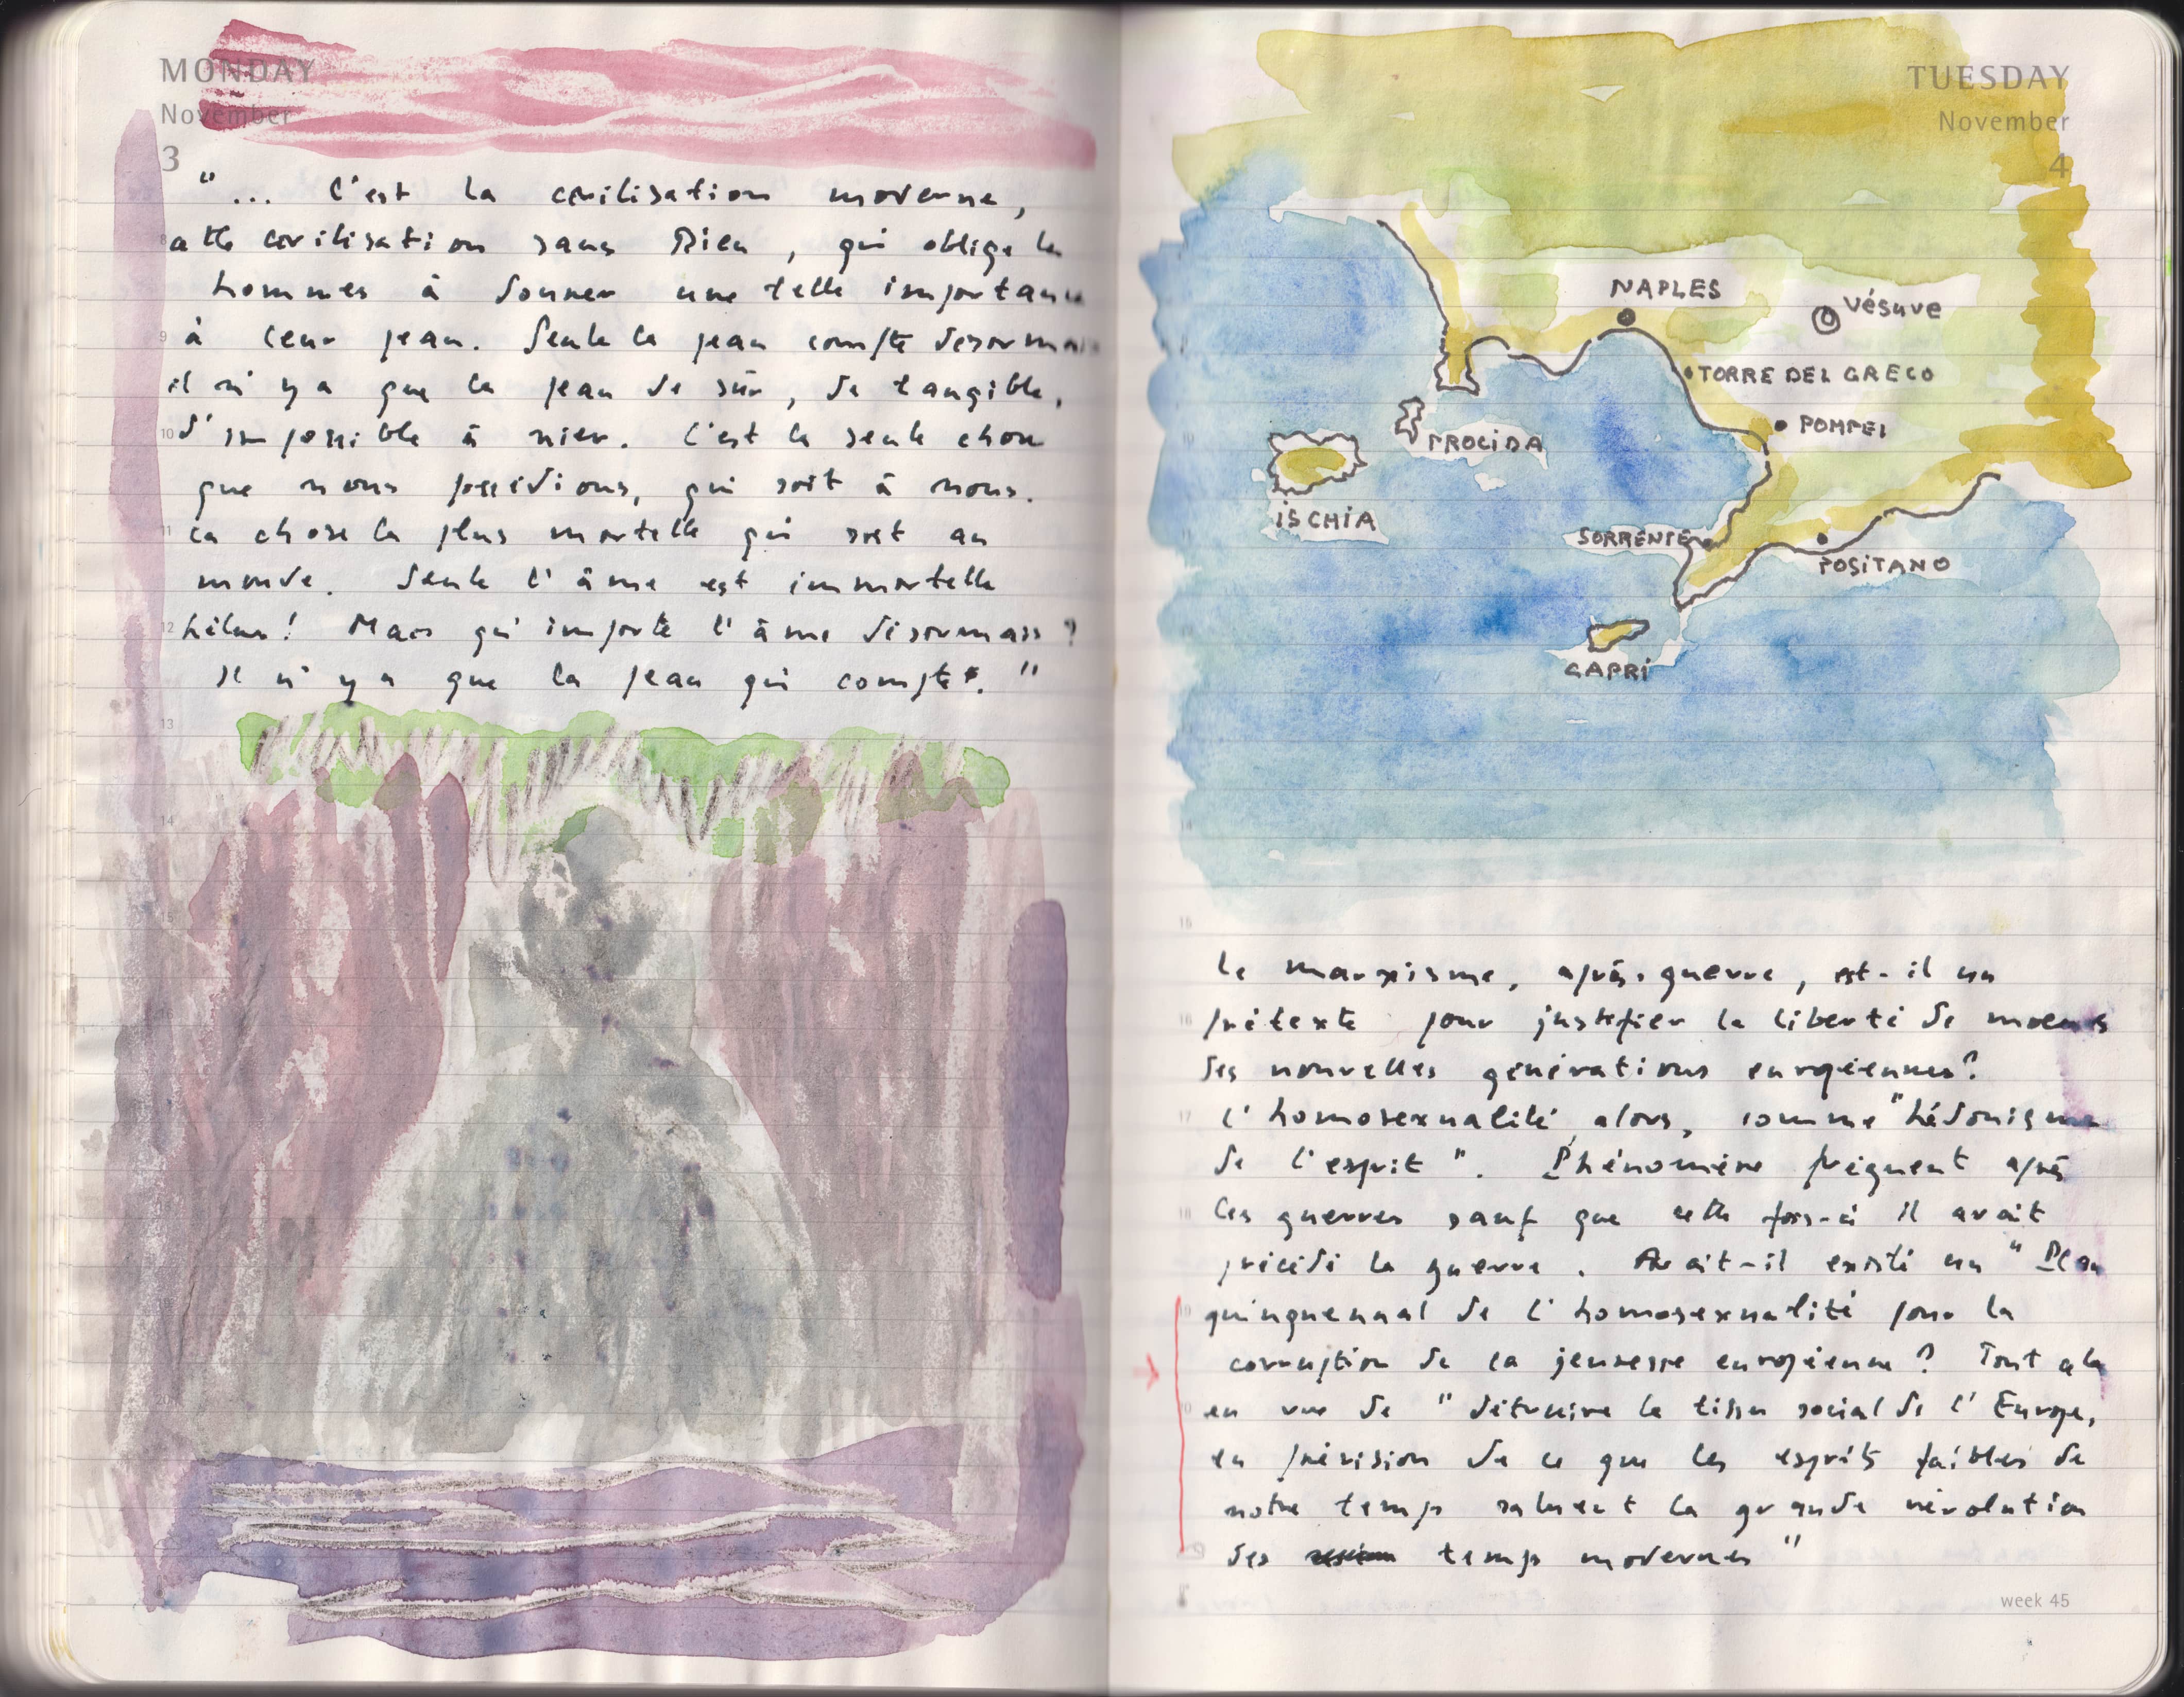 MONDAY
November
3
"... C'est la civilisation moderne,
8 cette civilisation sans Dieu, qui oblige les
hommes à donner une telle importance
9 à leur peau. Seule la peau compte désormais
il n'y a que la peau de sûr, de tangible,
10 d'impossible à nier. C'est la seule chose
que nous possédions, qui soit à nous.
11 La chose la plus mortelle qui soit au
monde. Seule l'âme est immortelle
12 hélas! Mais qu'importe l'âme désormais ?
Il n'y a que la peau qui compte. "
13
14
TUESDAY
November
4
NAPLES
Vésuve
TORRE DEL GRECO
POMPEI
PROCIDA
ISCHIA
SORRENTE
POSITANO
CAPRI
15
le marxisme, après-guerre, est-il un
16 prétexte pour justifier la liberté de moeurs
des nouvelles générations européennes?
17 L'homosexualité, alors, comme "hédonisme
de l'esprit". Phénomène fréquent après
18 les guerres sauf que cette fois-ci il avait
précédé la guerre. Avait-il existé un "Plan
19 quinquennal de l'homosexualité pour la
corruption de la jeunesse européenne ? Tout cela
en vue de "détruire le tissu social de l'Europe,
en prévision de ce que les esprits faibles de
notre temps saluent la grande révolution
des temps modernes"
week 45